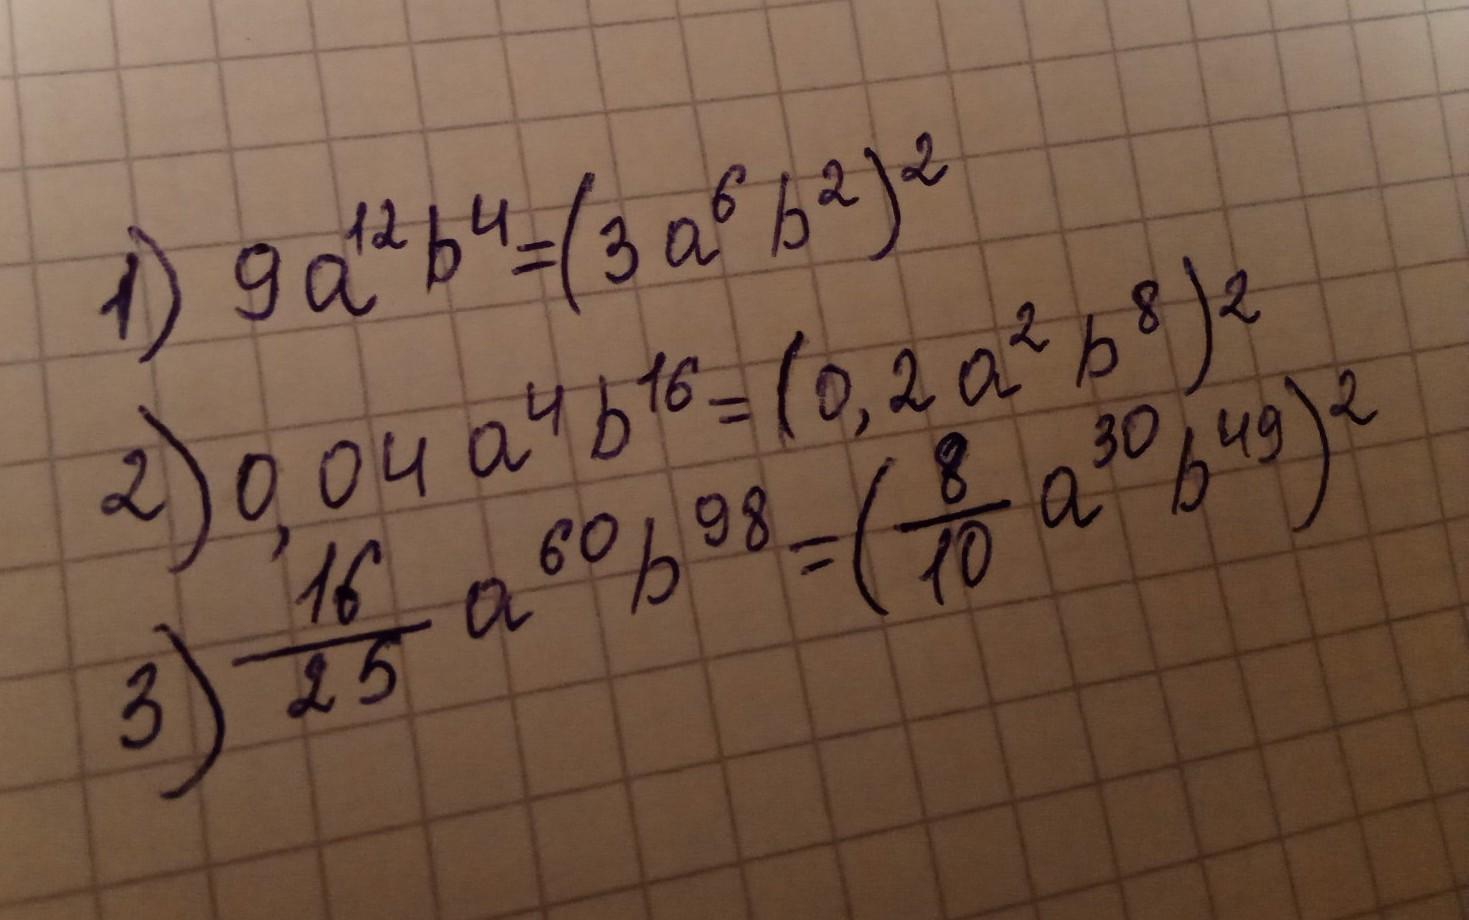 1) 9a¹²b⁴=(3a⁶b²)²
2) 0,04a⁴b¹⁶=(0,2a²b⁸)²
3) 16/25 a⁶⁰b⁹⁸=(8/10 a³⁰b⁴⁹)²